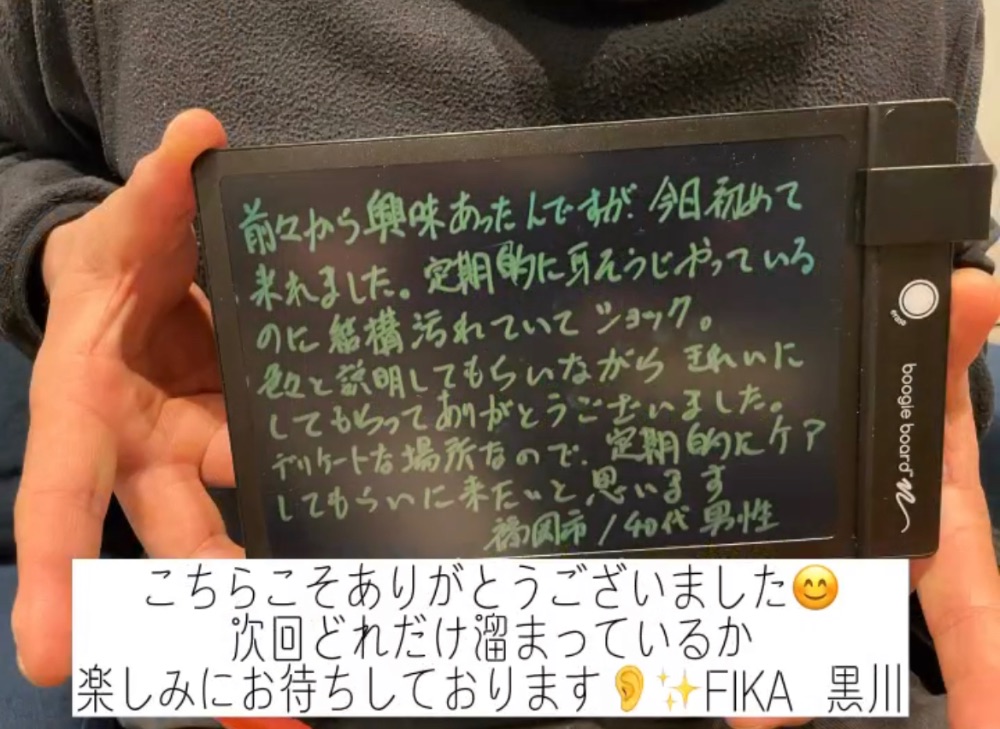 前々から興味あったんですが、今日初めて
来れました。定期的に耳そうじやっている
のに結構汚れていてショック。
色々と説明してもらいながら きれいに
してもらってありがとうございました。
デリケートな場所なので、定期的にケア
してもらいに来たいと思います
福岡市/40代男性
boogie board
こちらこそありがとうございました😊
次回どれだけ溜まっているか
楽しみにお待ちしております👂✨FIKA 黒川